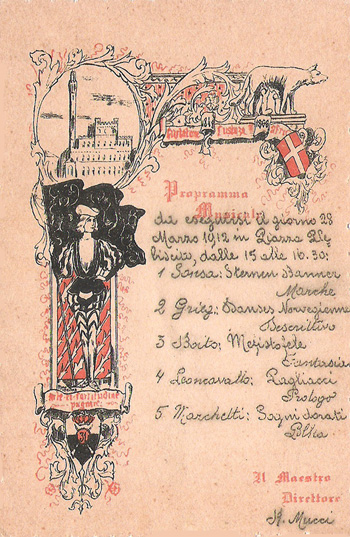 Programma
Musicale
da eseguirsi il giorno 28
Marzo 1912 in Piazza Ple
biscito, dalle 15 alle 16.30:
1 Sousa: Sternen Banner
Marche
2 Grieg: Danses Norvegienne
Descrittivo
3 Boito: Mefistofele
Fantasia
4 Leoncavallo: Pagliacci
Prologo
5 Marchetti: Sogni dorati
Polka
Il Maestro
Direttore
A. Mucci